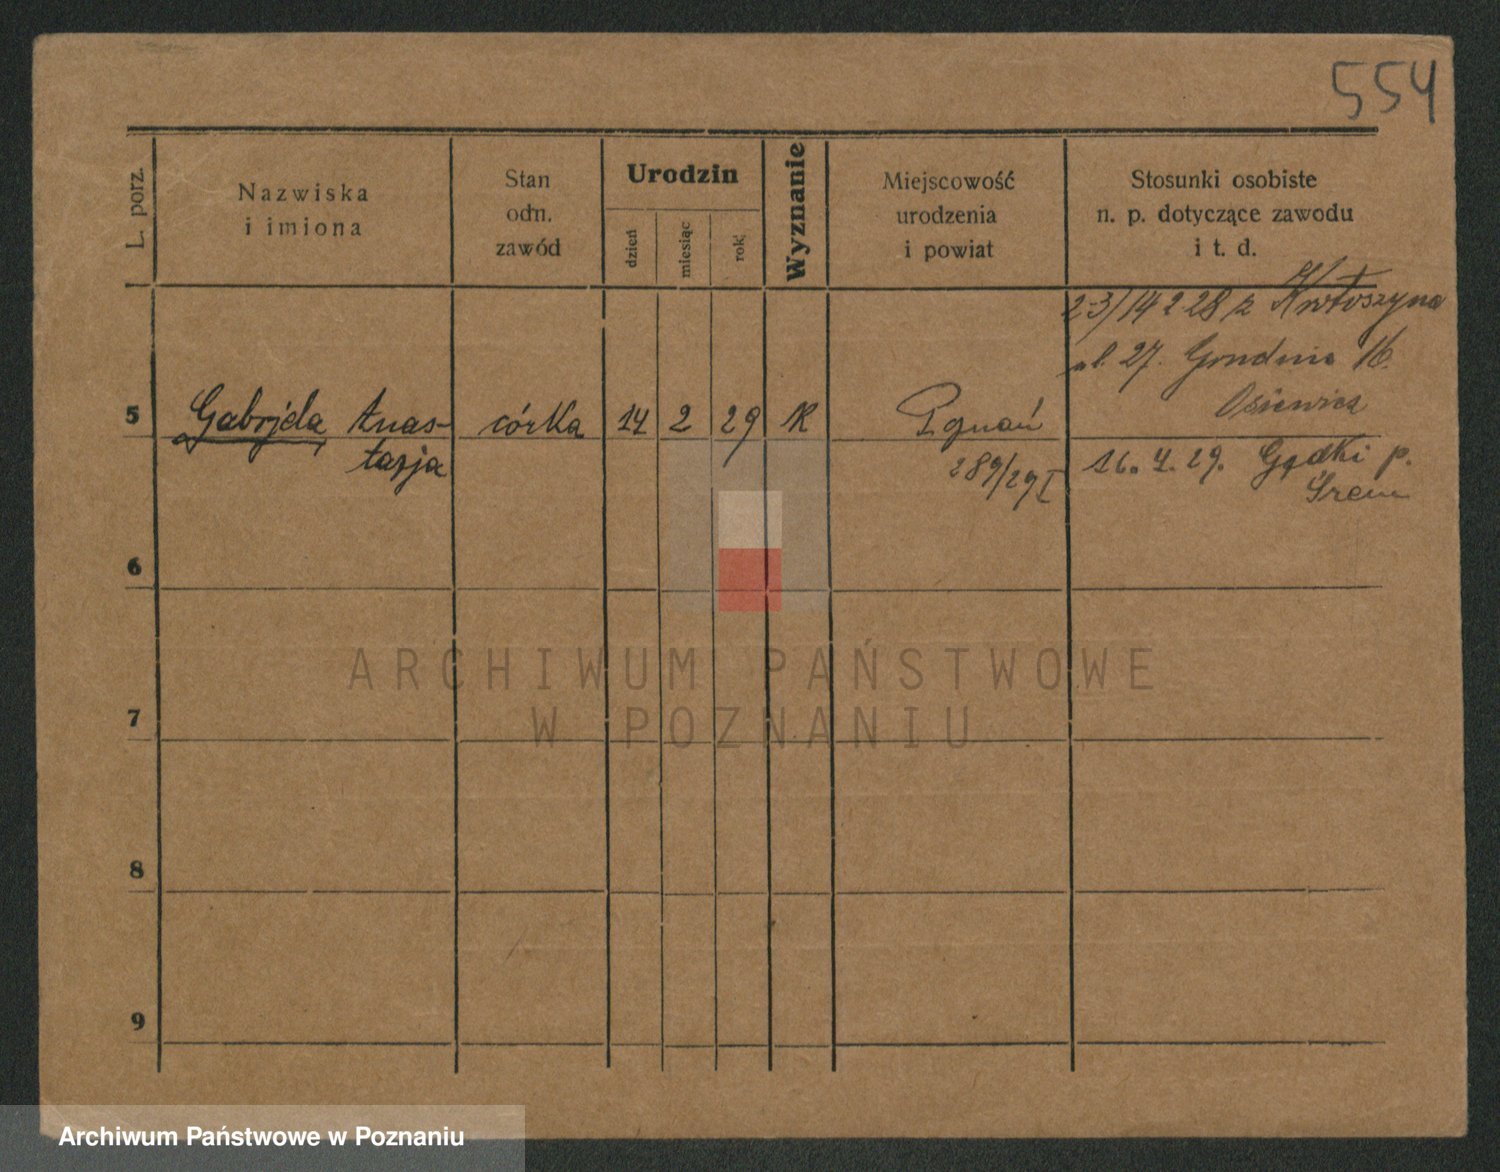 554
L. porz.
Nazwiska
i imiona
Stan
odn.
zawód
Urodzin
dzień
miesiąc
rok
Wyznanie
Miejscowość
urodzenia
i powiat
Stosunki osobiste
n. p. dotyczące zawodu
i t. d.
2-3/14 2 28 z Krotoszyna
ul. 27. Grudnia 16.
5 Gabrjela Anas- córka 14 2 29 K
tazja 289/29 I 16. 4. 29. Gądki p.
Śrem
6
7
8
9
ARCHIWUM PAŃSTWOWE
W POZNANIU
Archiwum Państwowe w Poznaniu